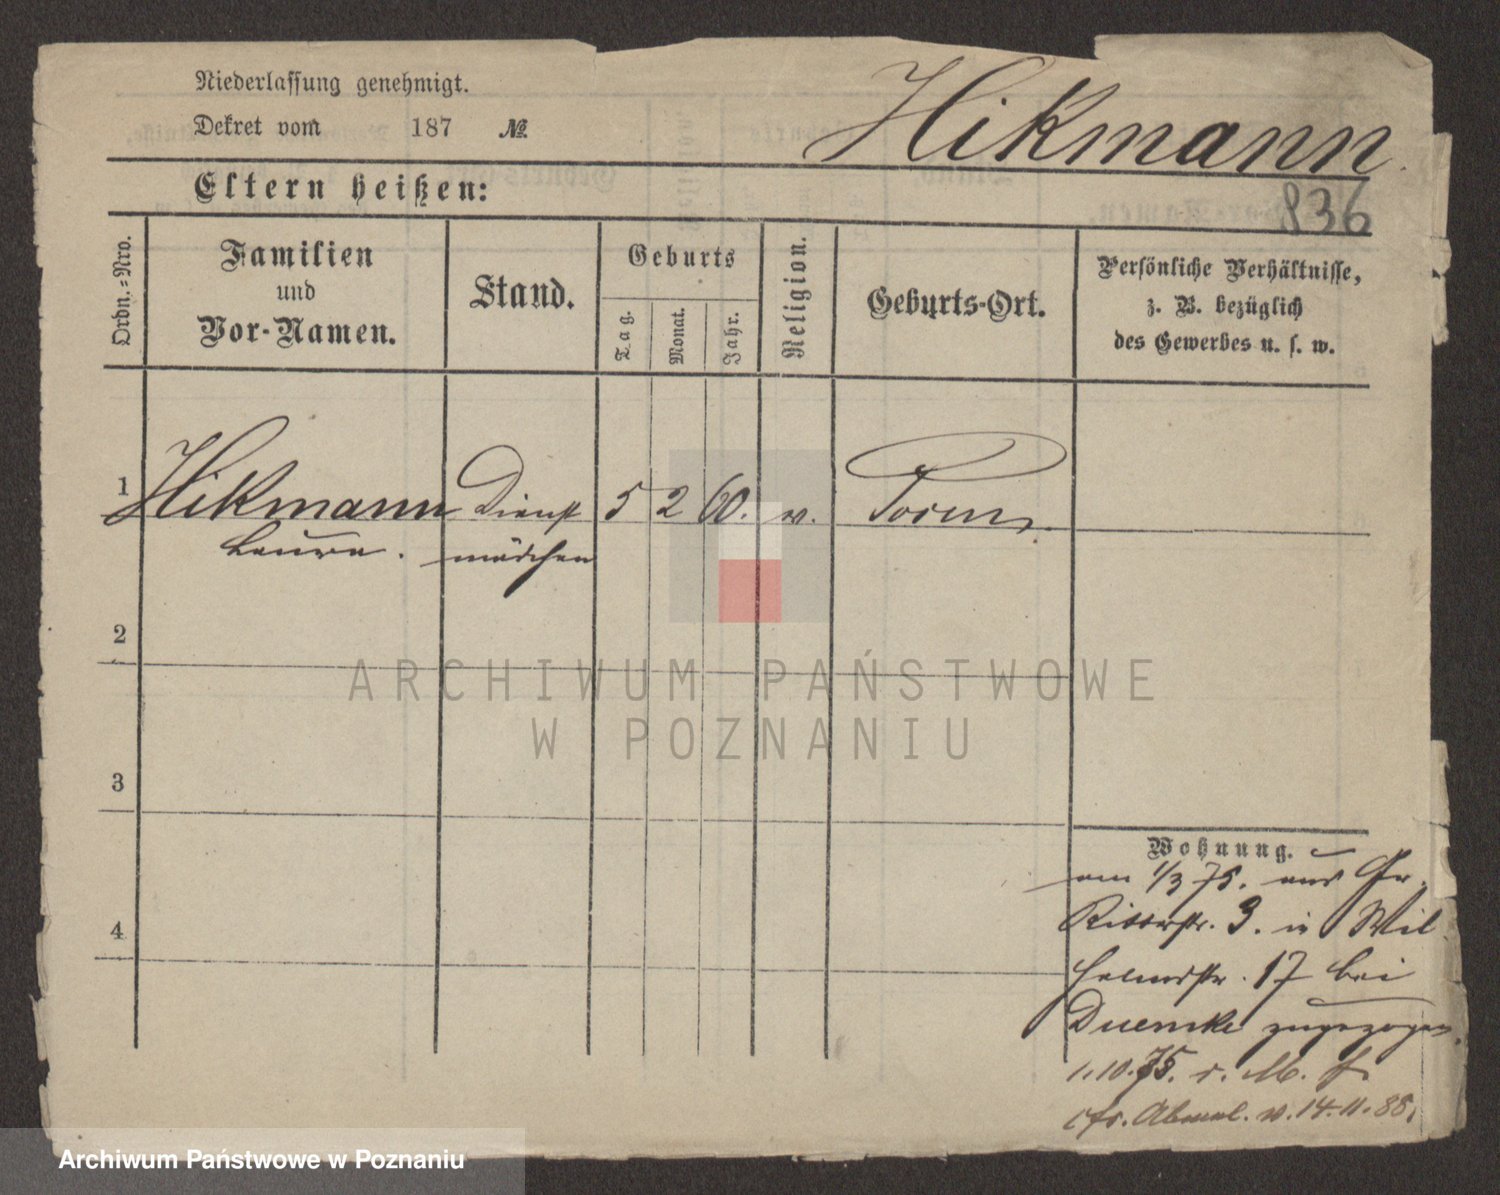 Niederlassung genehmigt.
Dekret vom 187 №
Hikmann
Eltern heißen:
836
Ordn.-Nro.
Familien
und
Vor-Namen.
Stand.
Geburts
Tag.
Monat.
Jahr.
Religion.
Geburts-Ort.
Persönliche Verhältnisse,
z. B. bezüglich
des Gewerbes u. s. w.
1 Hikmann Dienst 5 2 60. Posen.
Laura. mädchen
2
3
4
Wohnung.
am 1/3 75. aus Gr.
Ritterstr. 3. in Wil
helmstr. 17 bei
Duemke zugezogen.
1.10.75. v. M.
cfr. Abmel. v. 14.11.88.
ARCHIWUM PAŃSTWOWE
W POZNANIU
Archiwum Państwowe w Poznaniu